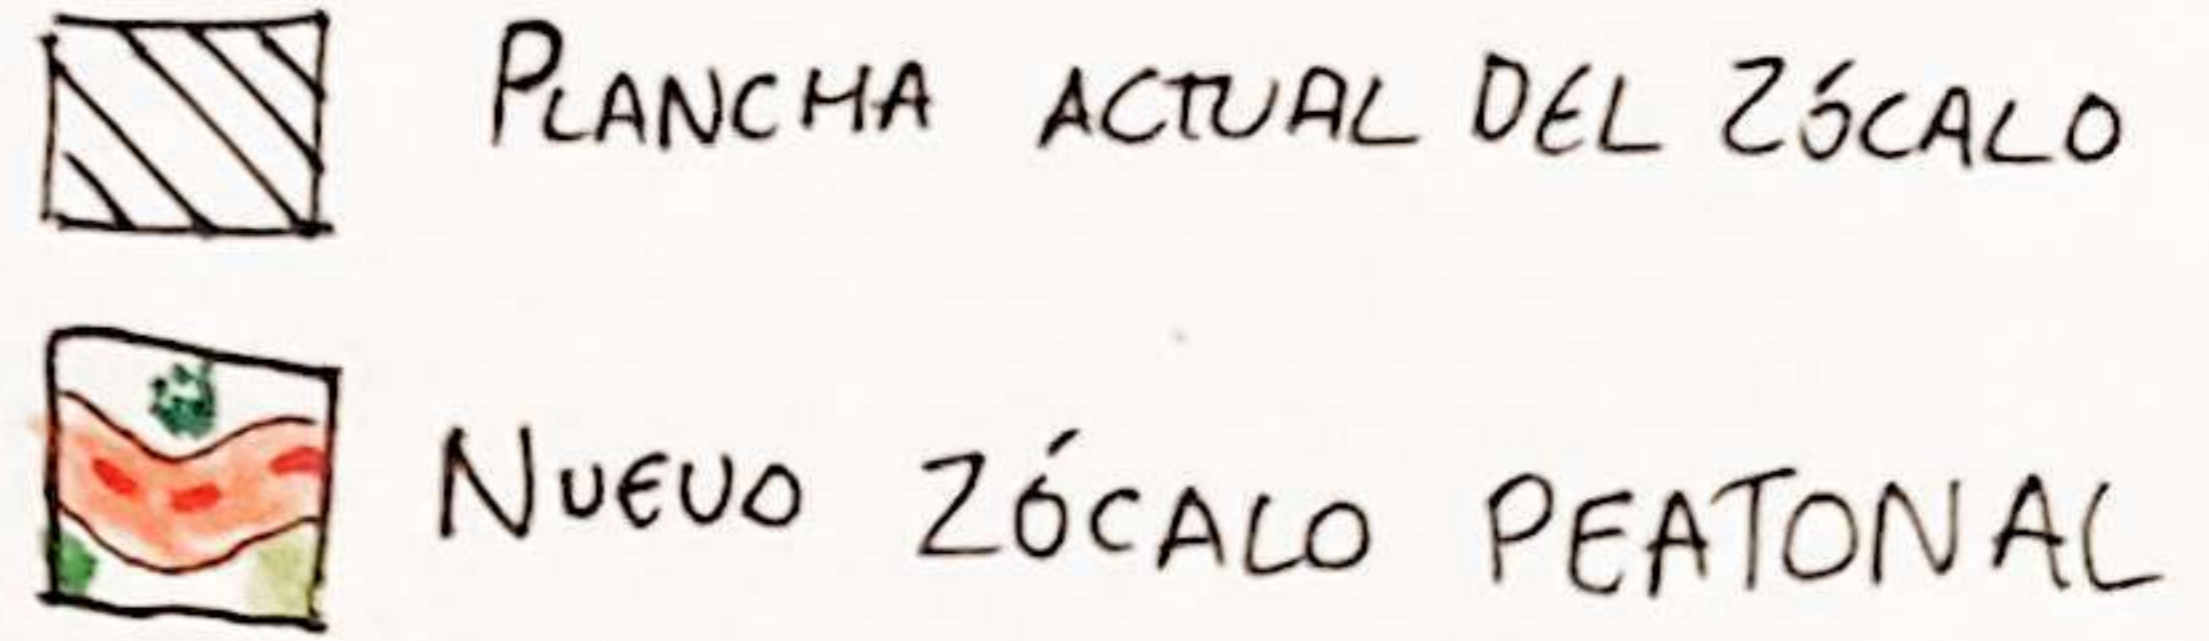 PLANCHA ACTUAL DEL ZÓCALO
NUEVO ZÓCALO PEATONAL